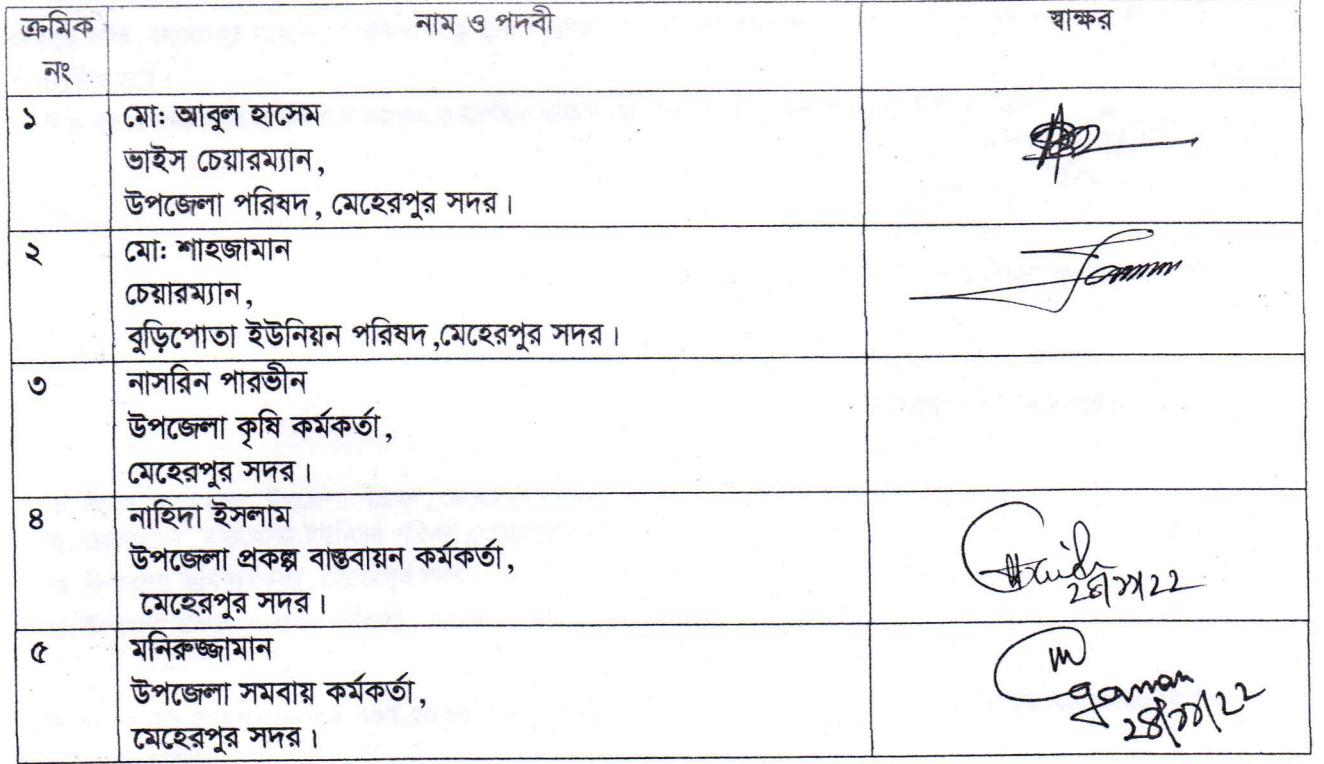 ক্রমিক নং নাম ও পদবী স্বাক্ষর
১ মো: আবুল হাসেম
ভাইস চেয়ারম্যান,
উপজেলা পরিষদ, মেহেরপুর সদর।
২ মো: শাহজামান
চেয়ারম্যান,
বুড়িপোতা ইউনিয়ন পরিষদ,মেহেরপুর সদর।
৩ নাসরিন পারভীন
উপজেলা কৃষি কর্মকর্তা,
মেহেরপুর সদর।
৪ নাহিদা ইসলাম
উপজেলা প্রকল্প বাস্তবায়ন কর্মকর্তা,
মেহেরপুর সদর।
৫ মনিরুজ্জামান
উপজেলা সমবায় কর্মকর্তা,
মেহেরপুর সদর।